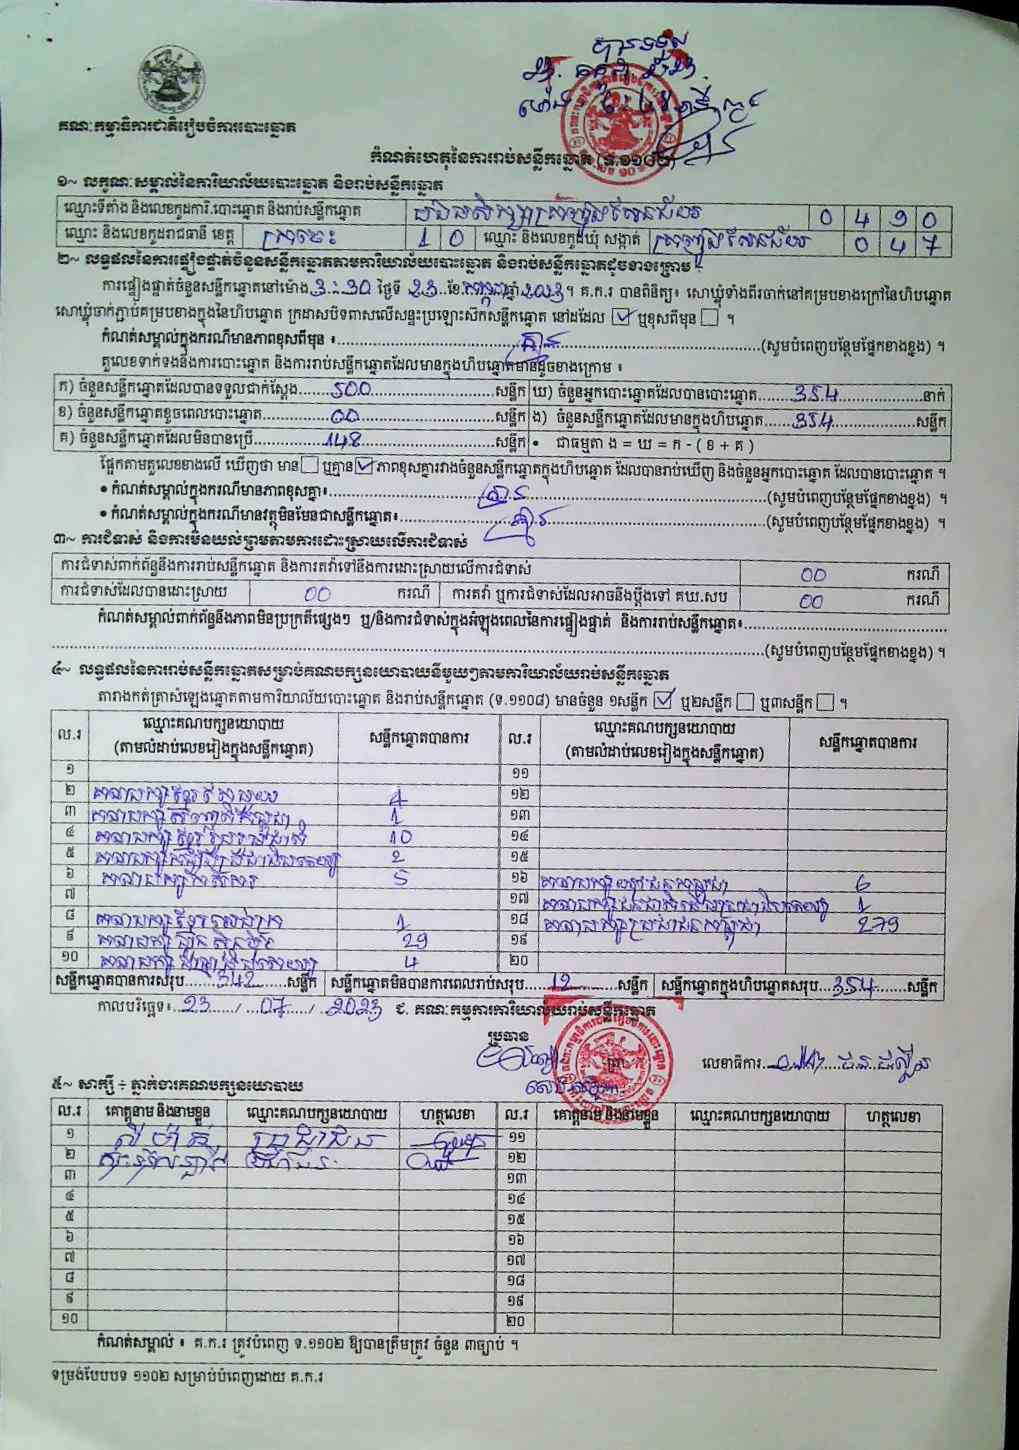 បានទទួល
គណៈកម្មាធិការជាតិរៀបចំការបោះឆ្នោត
កំណត់ហេតុនៃការរាប់សន្លឹកឆ្នោត (ទ.១១០២)
១~ លក្ខណៈសម្គាល់នៃការិយាល័យបោះឆ្នោត និងរាប់សន្លឹកឆ្នោត
ឈ្មោះទីតាំង និងលេខកូដការិ.បោះឆ្នោត និងរាប់សន្លឹកឆ្នោត 0 4 9 0
ឈ្មោះ និងលេខកូដរាជធានី ខេត្ត ក្រចេះ 1 0 ឈ្មោះ និងលេខកូដឃុំ សង្កាត់ 0 4 7
២~ លទ្ធផលនៃការផ្ទៀងផ្ទាត់ចំនួនសន្លឹកឆ្នោតតាមការិយាល័យបោះឆ្នោត និងរាប់សន្លឹកឆ្នោតដូចខាងក្រោម ÷
ការផ្ទៀងផ្ទាត់ចំនួនសន្លឹកឆ្នោតនៅម៉ោង 3:30 ថ្ងៃទី 23 ខែ កក្កដា ឆ្នាំ 2023 ។ គ.ក.រ បានពិនិត្យ៖ សោឃ្លុំទាំងពីរចាក់នៅគម្របខាងក្រៅនៃហិបឆ្នោត
សោឃ្លុំចាក់ភ្ជាប់គម្របខាងក្នុងនៃហិបឆ្នោត ក្រដាសបិទពាសលើសន្ទះប្រឡោះសឹកសន្លឹកឆ្នោត នៅដដែល ☑ ឬខុសពីមុន ☐ ។
កំណត់សម្គាល់ក្នុងករណីមានភាពខុសពីមុន ៖ គ្មាន (សូមបំពេញបន្ថែមផ្នែកខាងខ្នង) ។
តួលេខទាក់ទងនឹងការបោះឆ្នោត និងការរាប់សន្លឹកឆ្នោតដែលមានក្នុងហិបឆ្នោតមានដូចខាងក្រោម ៖
ក) ចំនួនសន្លឹកឆ្នោតដែលបានទទួលជាក់ស្តែង 500 សន្លឹក ឃ) ចំនួនអ្នកបោះឆ្នោតដែលបានបោះឆ្នោត 354 នាក់
ខ) ចំនួនសន្លឹកឆ្នោតខូចពេលបោះឆ្នោត 00 សន្លឹក ង) ចំនួនសន្លឹកឆ្នោតដែលមានក្នុងហិបឆ្នោត 354 សន្លឹក
គ) ចំនួនសន្លឹកឆ្នោតដែលមិនបានប្រើ 148 សន្លឹក • ជាធម្មតា ង = ឃ = ក - ( ខ + គ )
ផ្អែកតាមតួលេខខាងលើ ឃើញថា មាន ☐ ឬគ្មាន ☑ ភាពខុសគ្នារវាងចំនួនសន្លឹកឆ្នោតក្នុងហិបឆ្នោត ដែលបានរាប់ឃើញ និងចំនួនអ្នកបោះឆ្នោត ដែលបានបោះឆ្នោត ។
• កំណត់សម្គាល់ក្នុងករណីមានភាពខុសគ្នា៖ គ្មាន (សូមបំពេញបន្ថែមផ្នែកខាងខ្នង) ។
• កំណត់សម្គាល់ក្នុងករណីមានវត្ថុមិនមែនជាសន្លឹកឆ្នោត៖ គ្មាន (សូមបំពេញបន្ថែមផ្នែកខាងខ្នង) ។
៣~ ការជំទាស់ និងការមិនយល់ព្រមតាមការដោះស្រាយលើការជំទាស់
ការជំទាស់ពាក់ព័ន្ធនឹងការរាប់សន្លឹកឆ្នោត និងការតវ៉ាទៅនឹងការដោះស្រាយលើការជំទាស់ 00 ករណី
ការជំទាស់ដែលបានដោះស្រាយ 00 ករណី ការតវ៉ា ឬការជំទាស់ដែលអាចនឹងប្តឹងទៅ គឃ.សប 00 ករណី
កំណត់សម្គាល់ពាក់ព័ន្ធនឹងភាពមិនប្រក្រតីផ្សេងៗ ឬ/និងការជំទាស់ក្នុងអំឡុងពេលនៃការផ្ទៀងផ្ទាត់ និងការរាប់សន្លឹកឆ្នោត៖
(សូមបំពេញបន្ថែមផ្នែកខាងខ្នង) ។
៤~ លទ្ធផលនៃការរាប់សន្លឹកឆ្នោតសម្រាប់គណបក្សនយោបាយនីមួយៗតាមការិយាល័យរាប់សន្លឹកឆ្នោត
តារាងកត់ត្រាសំឡេងឆ្នោតតាមការិយាល័យបោះឆ្នោត និងរាប់សន្លឹកឆ្នោត (ទ.១១០៨) មានចំនួន ១សន្លឹក ☑ ឬ២សន្លឹក ☐ ឬ៣សន្លឹក ☐ ។
ល.រ ឈ្មោះគណបក្សនយោបាយ (តាមលំដាប់លេខរៀងក្នុងសន្លឹកឆ្នោត) សន្លឹកឆ្នោតបានការ ល.រ ឈ្មោះគណបក្សនយោបាយ (តាមលំដាប់លេខរៀងក្នុងសន្លឹកឆ្នោត) សន្លឹកឆ្នោតបានការ
១ ១១
២ 4 ១២
៣ 1 ១៣
៤ 10 ១៤
៥ 2 ១៥
៦ 5 ១៦ 6
៧ ១៧ 1
៨ 1 ១៨ គណបក្សប្រជាជនកម្ពុជា 279
៩ 29 ១៩
១០ 4 ២០
សន្លឹកឆ្នោតបានការសរុប 342 សន្លឹក សន្លឹកឆ្នោតមិនបានការពេលរាប់សរុប 12 សន្លឹក សន្លឹកឆ្នោតក្នុងហិបឆ្នោតសរុប 354 សន្លឹក
កាលបរិច្ឆេទ៖ 23 / 07 / 2023 ជ. គណៈកម្មការការិយាល័យរាប់សន្លឹកឆ្នោត
ប្រធាន
លេខាធិការ
៥~ សាក្សី ÷ ភ្នាក់ងារគណបក្សនយោបាយ
ល.រ គោត្តនាម និងនាមខ្លួន ឈ្មោះគណបក្សនយោបាយ ហត្ថលេខា ល.រ គោត្តនាម និងនាមខ្លួន ឈ្មោះគណបក្សនយោបាយ ហត្ថលេខា
១ ប្រជាជន ១១
២ ១២
៣ ១៣
៤ ១៤
៥ ១៥
៦ ១៦
៧ ១៧
៨ ១៨
៩ ១៩
១០ ២០
កំណត់សម្គាល់ ៖ គ.ក.រ ត្រូវបំពេញ ទ.១១០២ ឱ្យបានត្រឹមត្រូវ ចំនួន ៣ច្បាប់ ។
ទម្រង់បែបបទ ១១០២ សម្រាប់បំពេញដោយ គ.ក.រ